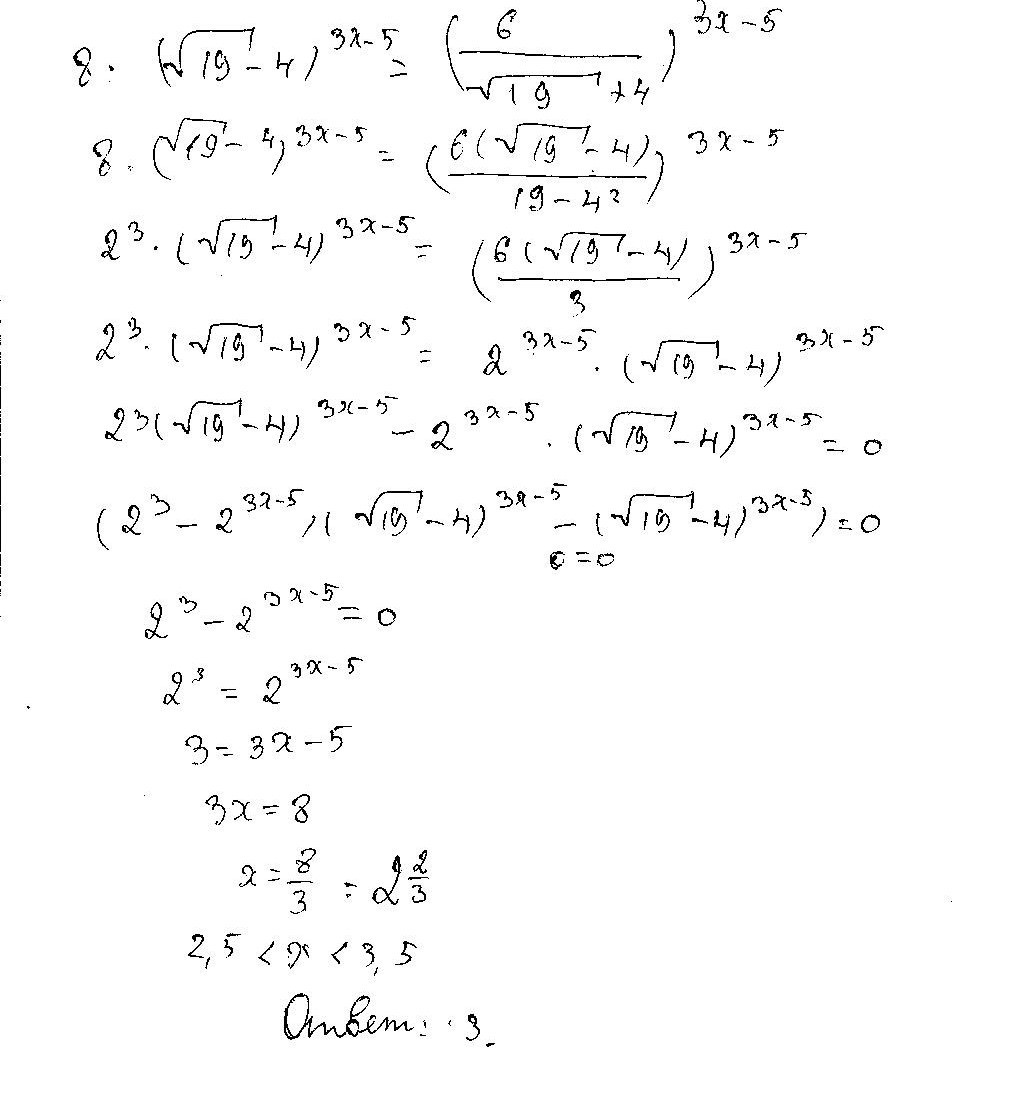 8 · (√19 - 4)^(3x-5) = (6/(√19 + 4))^(3x-5)
8 · (√19 - 4)^(3x-5) = (6(√19 - 4)/(19 - 4²))^(3x-5)
2³ · (√19 - 4)^(3x-5) = (6(√19 - 4)/3)^(3x-5)
2³ · (√19 - 4)^(3x-5) = 2^(3x-5) · (√19 - 4)^(3x-5)
2³(√19 - 4)^(3x-5) - 2^(3x-5) · (√19 - 4)^(3x-5) = 0
(2³ - 2^(3x-5))((√19 - 4)^(3x-5) - (√19 - 4)^(3x-5)) = 0
0 = 0
2³ - 2^(3x-5) = 0
2³ = 2^(3x-5)
3 = 3x - 5
3x = 8
x = 8/3 = 2 2/3
2,5 < x < 3,5
Ответ: 3.